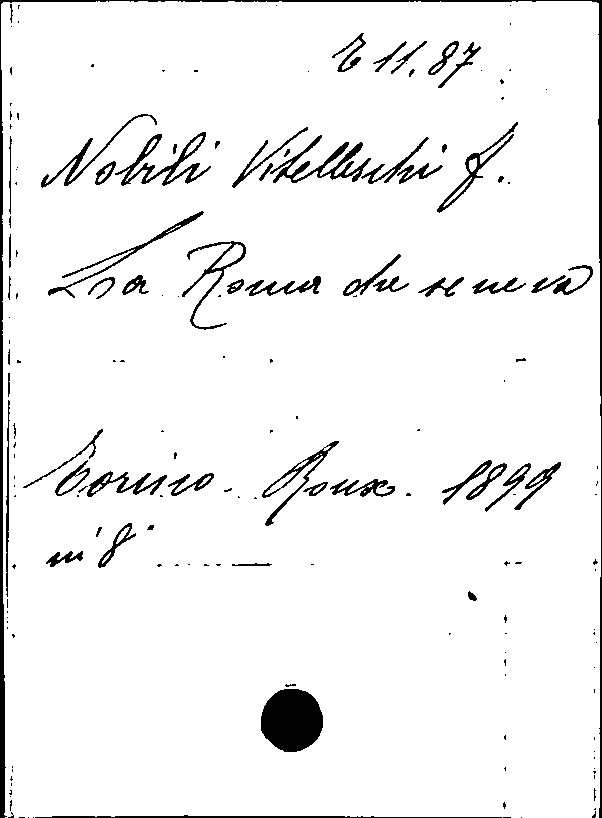 E 11.87
Nobili Vitelleschi f.
La Roma che
Torino. Roux. 1899
in 8°